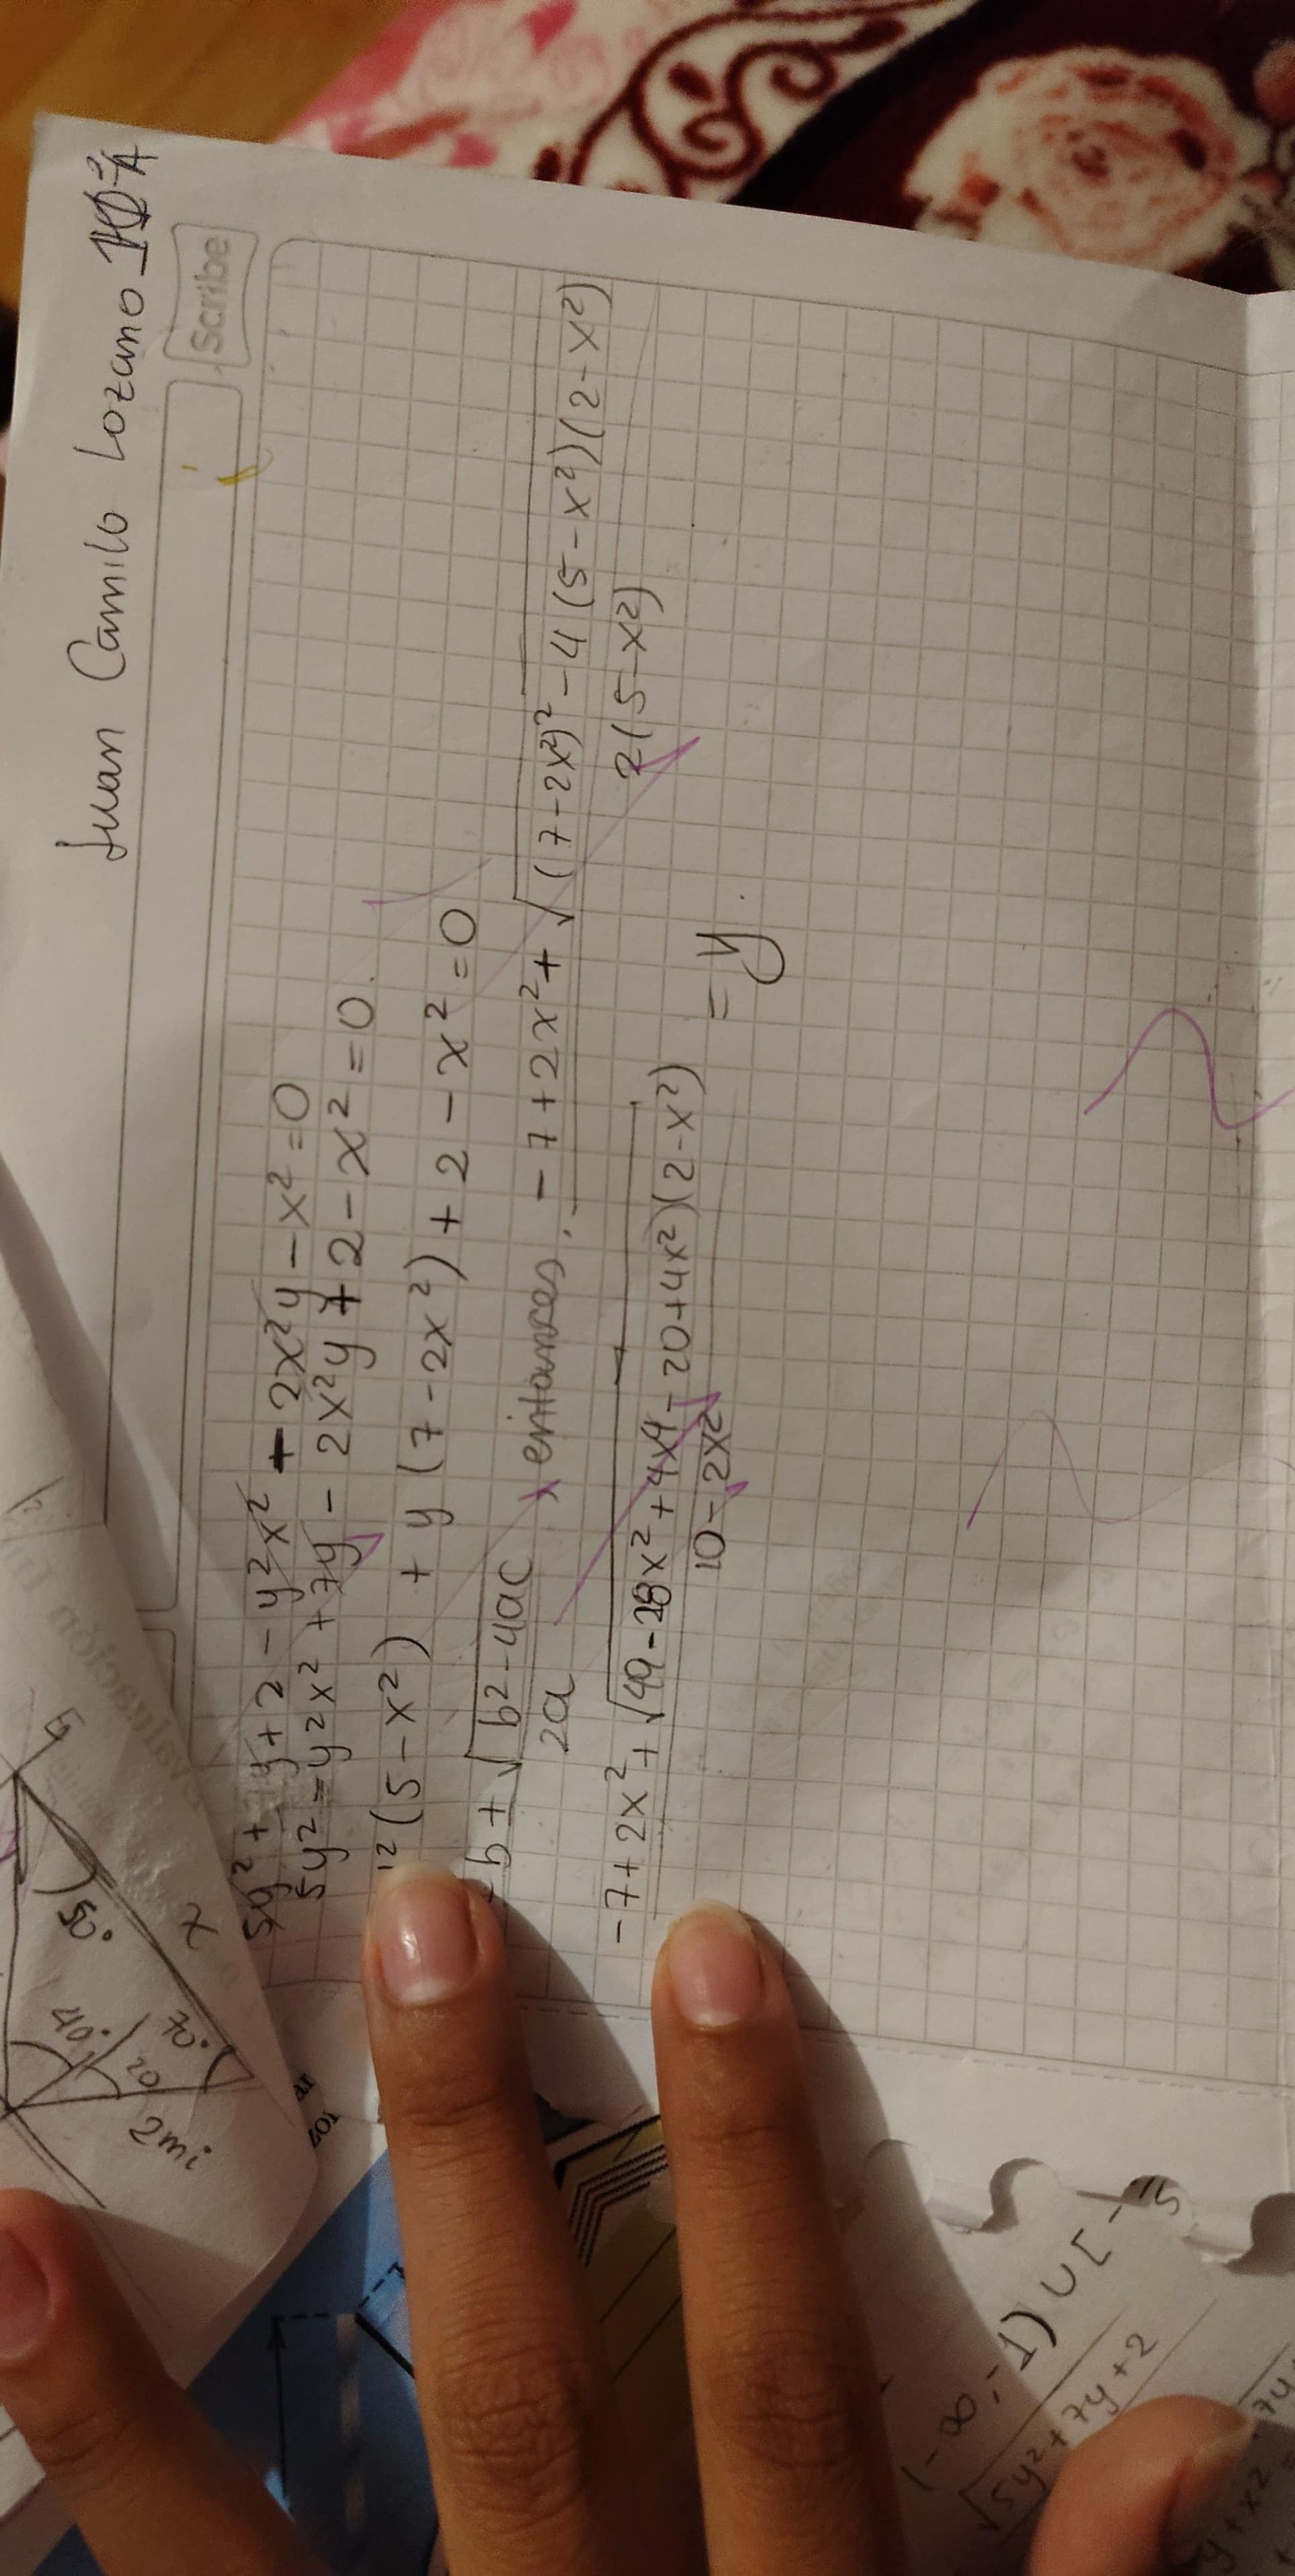 Juan Camilo Lozano
Scribe
5y² + y + 2 - y²x² - 2x²y - x² = 0
5y² - y²x² + 7y - 2x²y + 2 - x² = 0.
²(5 - x²) + y (7 - 2x²) + 2 - x² = 0
-b + √b² - 4ac
2a
entonces, -7 + 2x² + √(7 - 2x²)² - 4 (5 - x²)(2 - x²)
2(5 - x²)
-7 + 2x² + √49 - 28x² + 4x4 - 20 + 4x²)(2 - x²)
10 - 2x²
= y
50°
40°
20
70°
x
2mi
(-∞, -1) ∪ [-
5
√5y² + 7y + 2